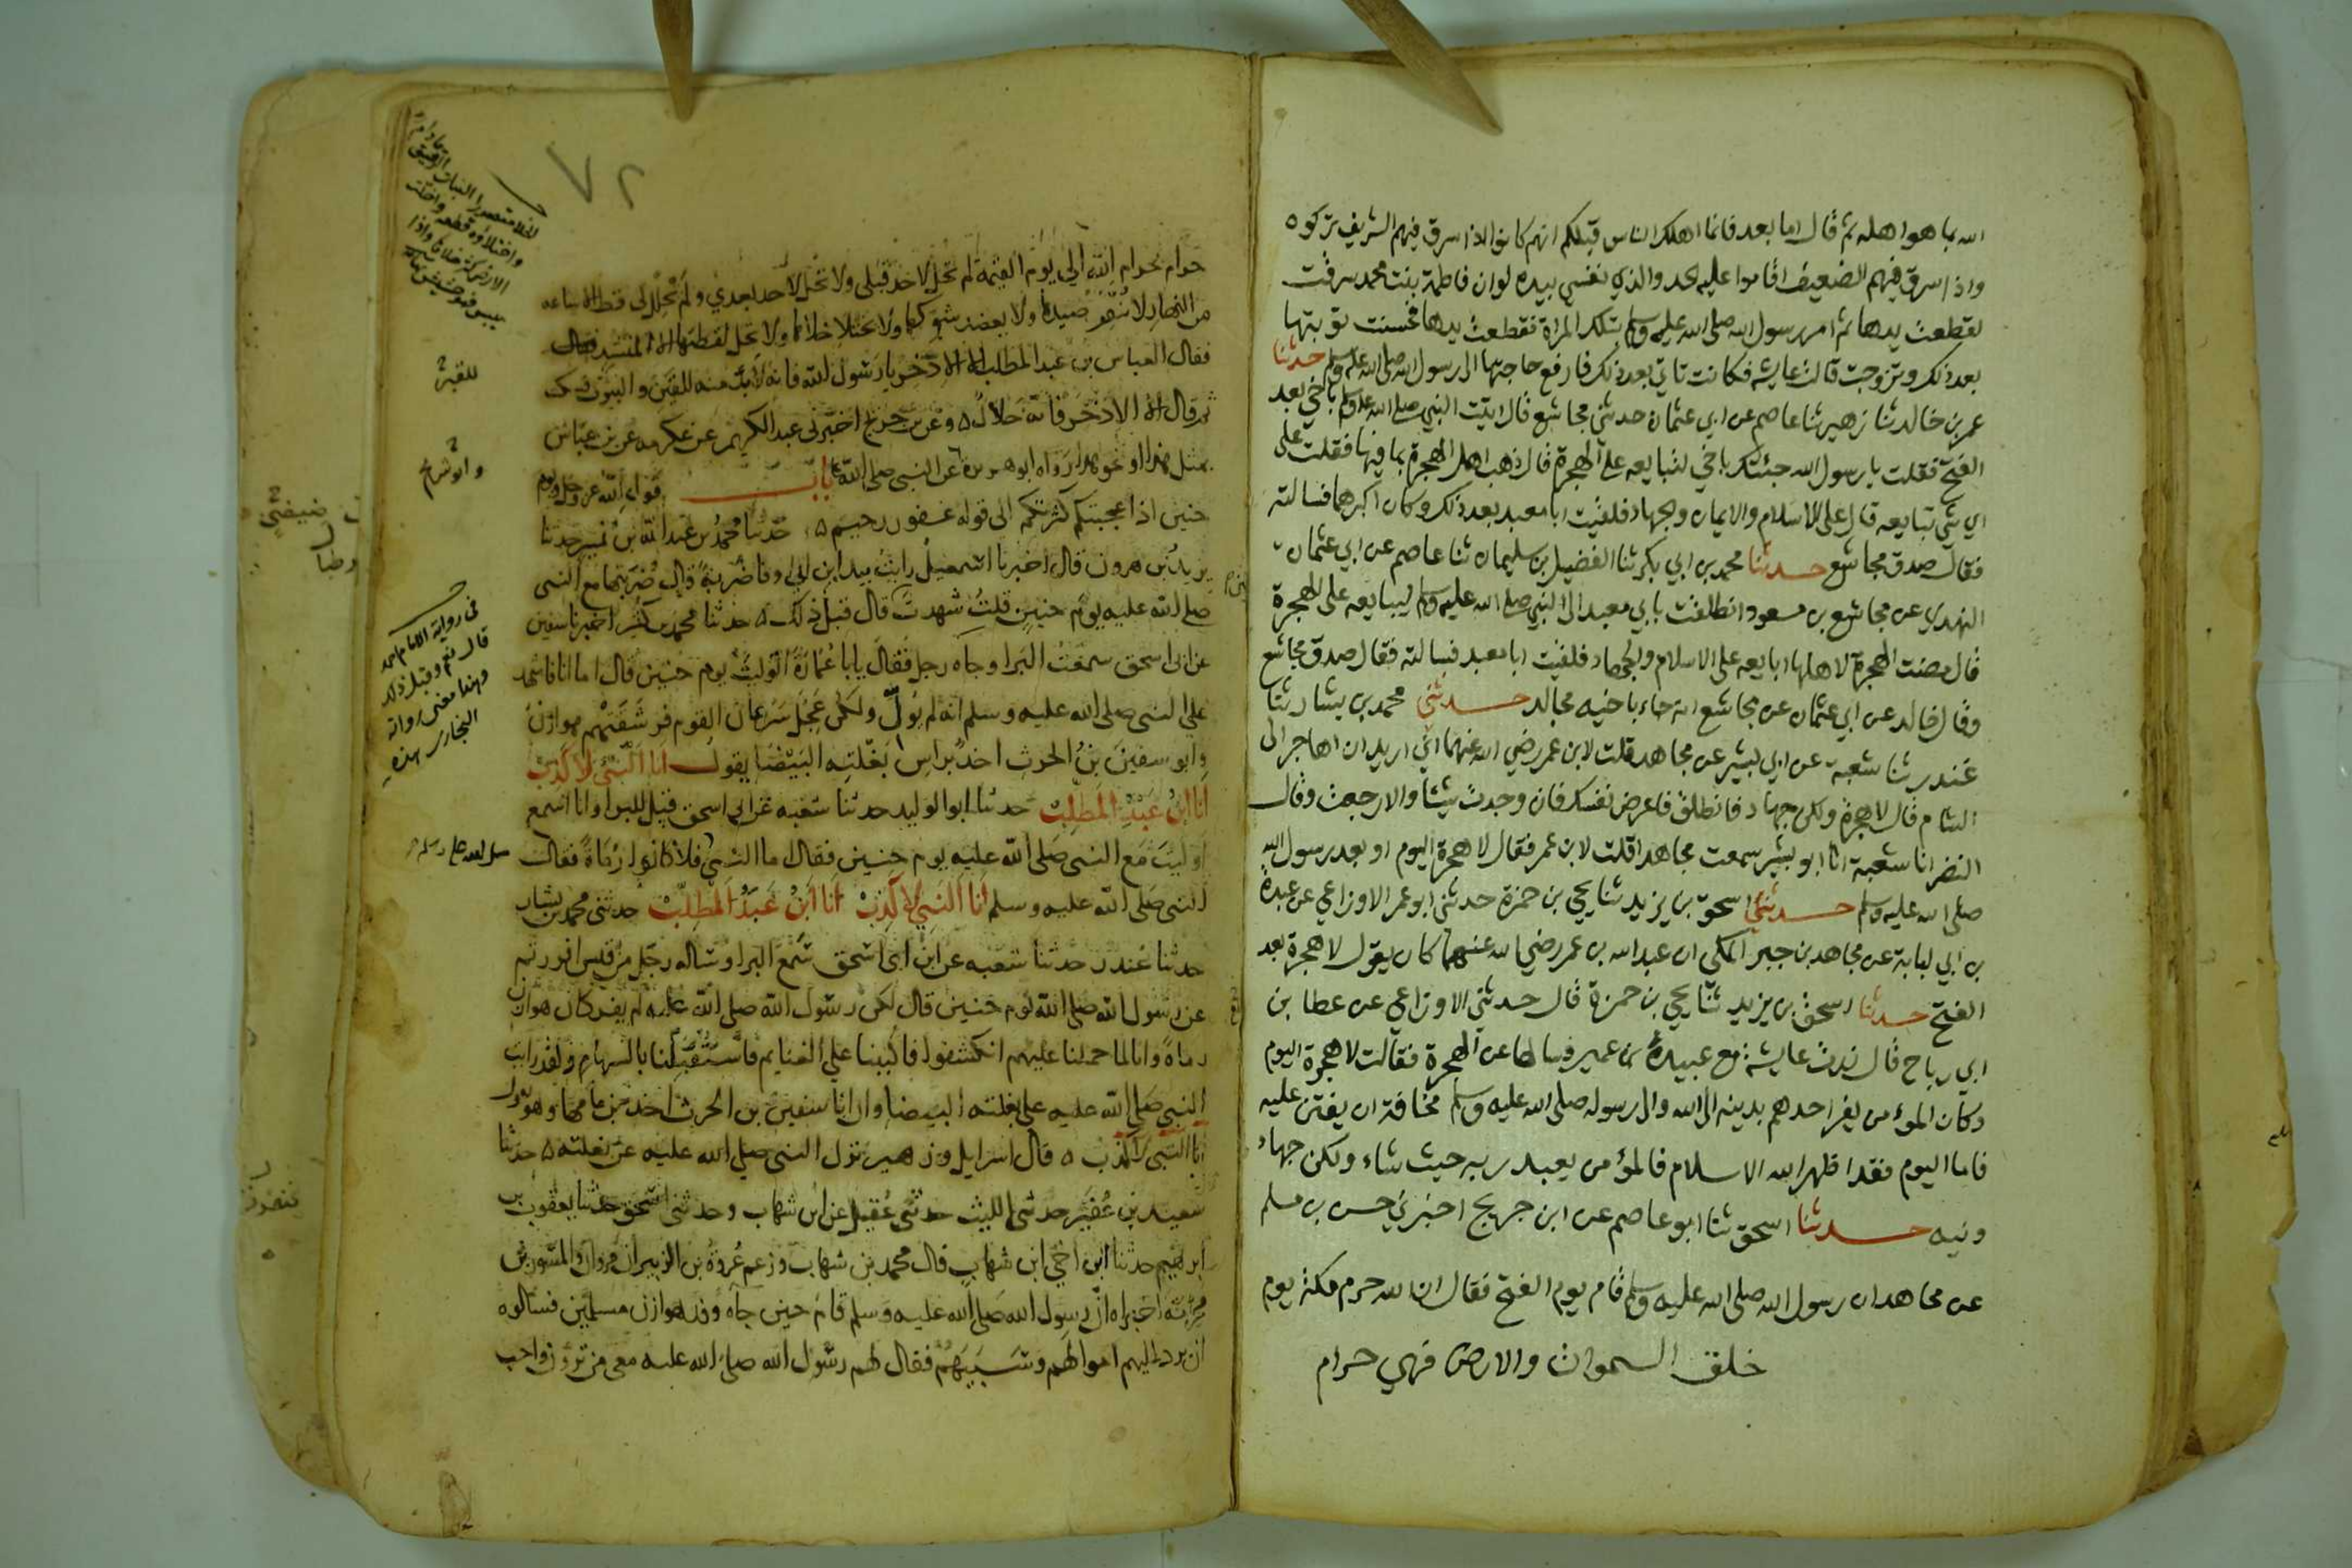 الله بما هو اهله ثم قال اما بعد فانما اهلك الناس قبلكم انهم كانوا اذا سرق فيهم الشريف تركوه
واذا سرق فيهم الضعيف اقاموا عليه الحد والذي نفسي بيده لو ان فاطمة بنت محمد سرقت
لقطعت يدها ثم امر رسول الله صلى الله عليه وسلم بتلك المراة فقطعت يدها فحسنت توبتها
بعد ذلك وتزوجت قالت عايشه فكانت تاتي بعد ذلك فارفع حاجتها الى رسول الله صلى الله عليه وسلم حدثنا
عمرو بن خالد ثنا زهير ثنا عاصم عن ابي عثمان حدثني مجاشع قال اتيت النبي صلى الله عليه وسلم باخي بعد
الفتح فقلت يا رسول الله جئتك باخي لتبايعه على الهجرة قال ذهب اهل الهجرة بما فيها فقلت على
اي شي تبايعه قال على الاسلام والايمان والجهاد فلقيت ابا معبد بعد ذلك وكان اكبرهما فسالته
فقال صدق مجاشع حدثنا محمد بن ابي بكر ثنا الفضيل بن سليمان ثنا عاصم عن ابي عثمان
النهدي عن مجاشع بن مسعود انطلقت بابي معبد الى النبي صلى الله عليه وسلم ليبايعه على الهجرة
قال مضت الهجرة لاهلها ابايعه على الاسلام والجهاد فلقيت ابا معبد فسالته فقال صدق مجاشع
وقال خالد عن ابي عثمان عن مجاشع انه جاء باخيه مجالد حدثني محمد بن بشار ثنا
غندر ثنا شعبة عن ابي بشير عن مجاهد قلت لابن عمر رضي الله عنهما اني اريد ان اهاجر الى
الشام قال لا هجرة ولكن جهاد فانطلق فاعرض نفسك فان وجدت شيئا والا رجعت وقال
النضر انا شعبة انا ابو بشير سمعت مجاهدا قلت لابن عمر فقال لا هجرة اليوم او بعد رسول الله
صلى الله عليه وسلم حدثني اسحق بن يزيد ثنا يحيى بن حمزة حدثني ابو عمر الاوزاعي عن عبدة
بن ابي لبابة عن مجاهد بن جبر المكى ان عبد الله بن عمر رضي الله عنهما كان يقول لا هجرة بعد
الفتح حدثنا اسحق بن يزيد ثنا يحيى بن حمزة قال حدثني الاوزاعي عن عطا بن
ابي رباح قال زرت عايشة مع عبيدة بن عمير فسالها عن الهجرة فقالت لا هجرة اليوم
وكان المؤمن يفر احدهم بدينه الى الله والى رسوله صلى الله عليه وسلم مخافة ان يفتن عليه
فاما اليوم فقد اظهر الله الاسلام فالمؤمن يعبد ربه حيث شاء ولكن جهاد
ونيه حدثنا اسحق ثنا ابو عاصم عن ابن جريج اخبرني حسن بن مسلم
عن مجاهد ان رسول الله صلى الله عليه وسلم قام يوم الفتح فقال ان الله حرم مكة يوم
خلق السموات والارض فهي حرام
٧٢
حرام بحرام الله الى يوم القيمة لم تحل لاحد قبلى ولا تحل لاحد بعدي ولم تحلل لى قط الا ساعه
من النهار لا ينفر صيدها ولا يعضد شوكها ولا يختلا خلاها ولا تحل لقطتها الا لمنشد
فقال العباس بن عبد المطلب الا الاذخر يا رسول الله فانه لا بد منه للقين والبيوت فسكت
ثم قال الا الاذخر فانه حلال ٥ وعن بن جريج اخبرنى عبد الكريم عن عكرمه عن بن عباس
بمثل هذا او نحو هذا رواه ابو هريرة عن النبى صلى الله باب قول الله عز وجل ويوم
حنين اذ اعجبتكم كثرتكم الى قوله غفور رحيم ٥ حدثنا محمد بن عبد الله بن نمير حدثنا
يزيد بن هرون قال اخبرنا اسمعيل رايت بيد ابن ابى اوفا ضربة قال ضربتها مع النبى
صلى الله عليه يوم حنين قلت شهدت قال قبل ذلك ٥ حدثنا محمد بن كثير اخبرنا سفين
عن ابى اسحق سمعت البرا وجاه رجل فقال يابا عمارة اتوليت يوم حنين قال اما انا فاشهد
على النبى صلى الله عليه وسلم انه لم يول ولكن عجل سرعان القوم فرشقتهم هوازن
وابو سفين بن الحرث اخذ براس بغلته البيضا يقول انا النبي لا كذب
انا ابن عبد المطلب حدثنا ابو الوليد حدثنا شعبه عن ابى اسحق قيل للبرا وانا اسمع
اوليت مع النبى صلى الله عليه يوم حنين فقال اما النبى فلا كانوا رماة فقال
النبى صلى الله عليه وسلم انا النبي لا كذب انا ابن عبد المطلب حدثنى محمد بن بشار
حدثنا غندر حدثنا شعبه عن ابى اسحق سمع البرا وساله رجل من قيس افررتم
عن رسول الله صلى الله يوم حنين قال لكن رسول الله صلى الله عليه لم يفر كان هوازن
رماة وانا لما حملنا عليهم انكشفوا فاكببنا على الغنايم فاستقبلنا بالسهام ولقد رايت
النبي صلى الله عليه على بغلته البيضا وان ابا سفين بن الحرث اخذ بزمامها وهو يقول
انا النبى لا كذب ٥ قال اسرايل وزهير نزل النبى صلى الله عليه عن بغلته ٥ حدثنا
سعيد بن عفير حدثنى الليث حدثنى عقيل عن ابن شهاب وحدثنى اسحق حدثنا يعقوب بن
ابرهيم حدثنا ابن اخي ابن شهاب قال محمد بن شهاب وزعم عروة بن الزبير ان مروان والمسور بن
مخرمة اخبراه ان رسول الله صلى الله عليه وسلم قام حين جاه وفد هوازن مسلمين فسالوه
ان يرد اليهم اموالهم وسبيهم فقال لهم رسول الله صلى الله عليه معى من ترون واحب
للقبر
وابو شريح
فى رواية الامام احمد
قال نعم وقبل ذلك
وهذا معنى رواته
البخارى هذه
صلى الله عليه وسلم